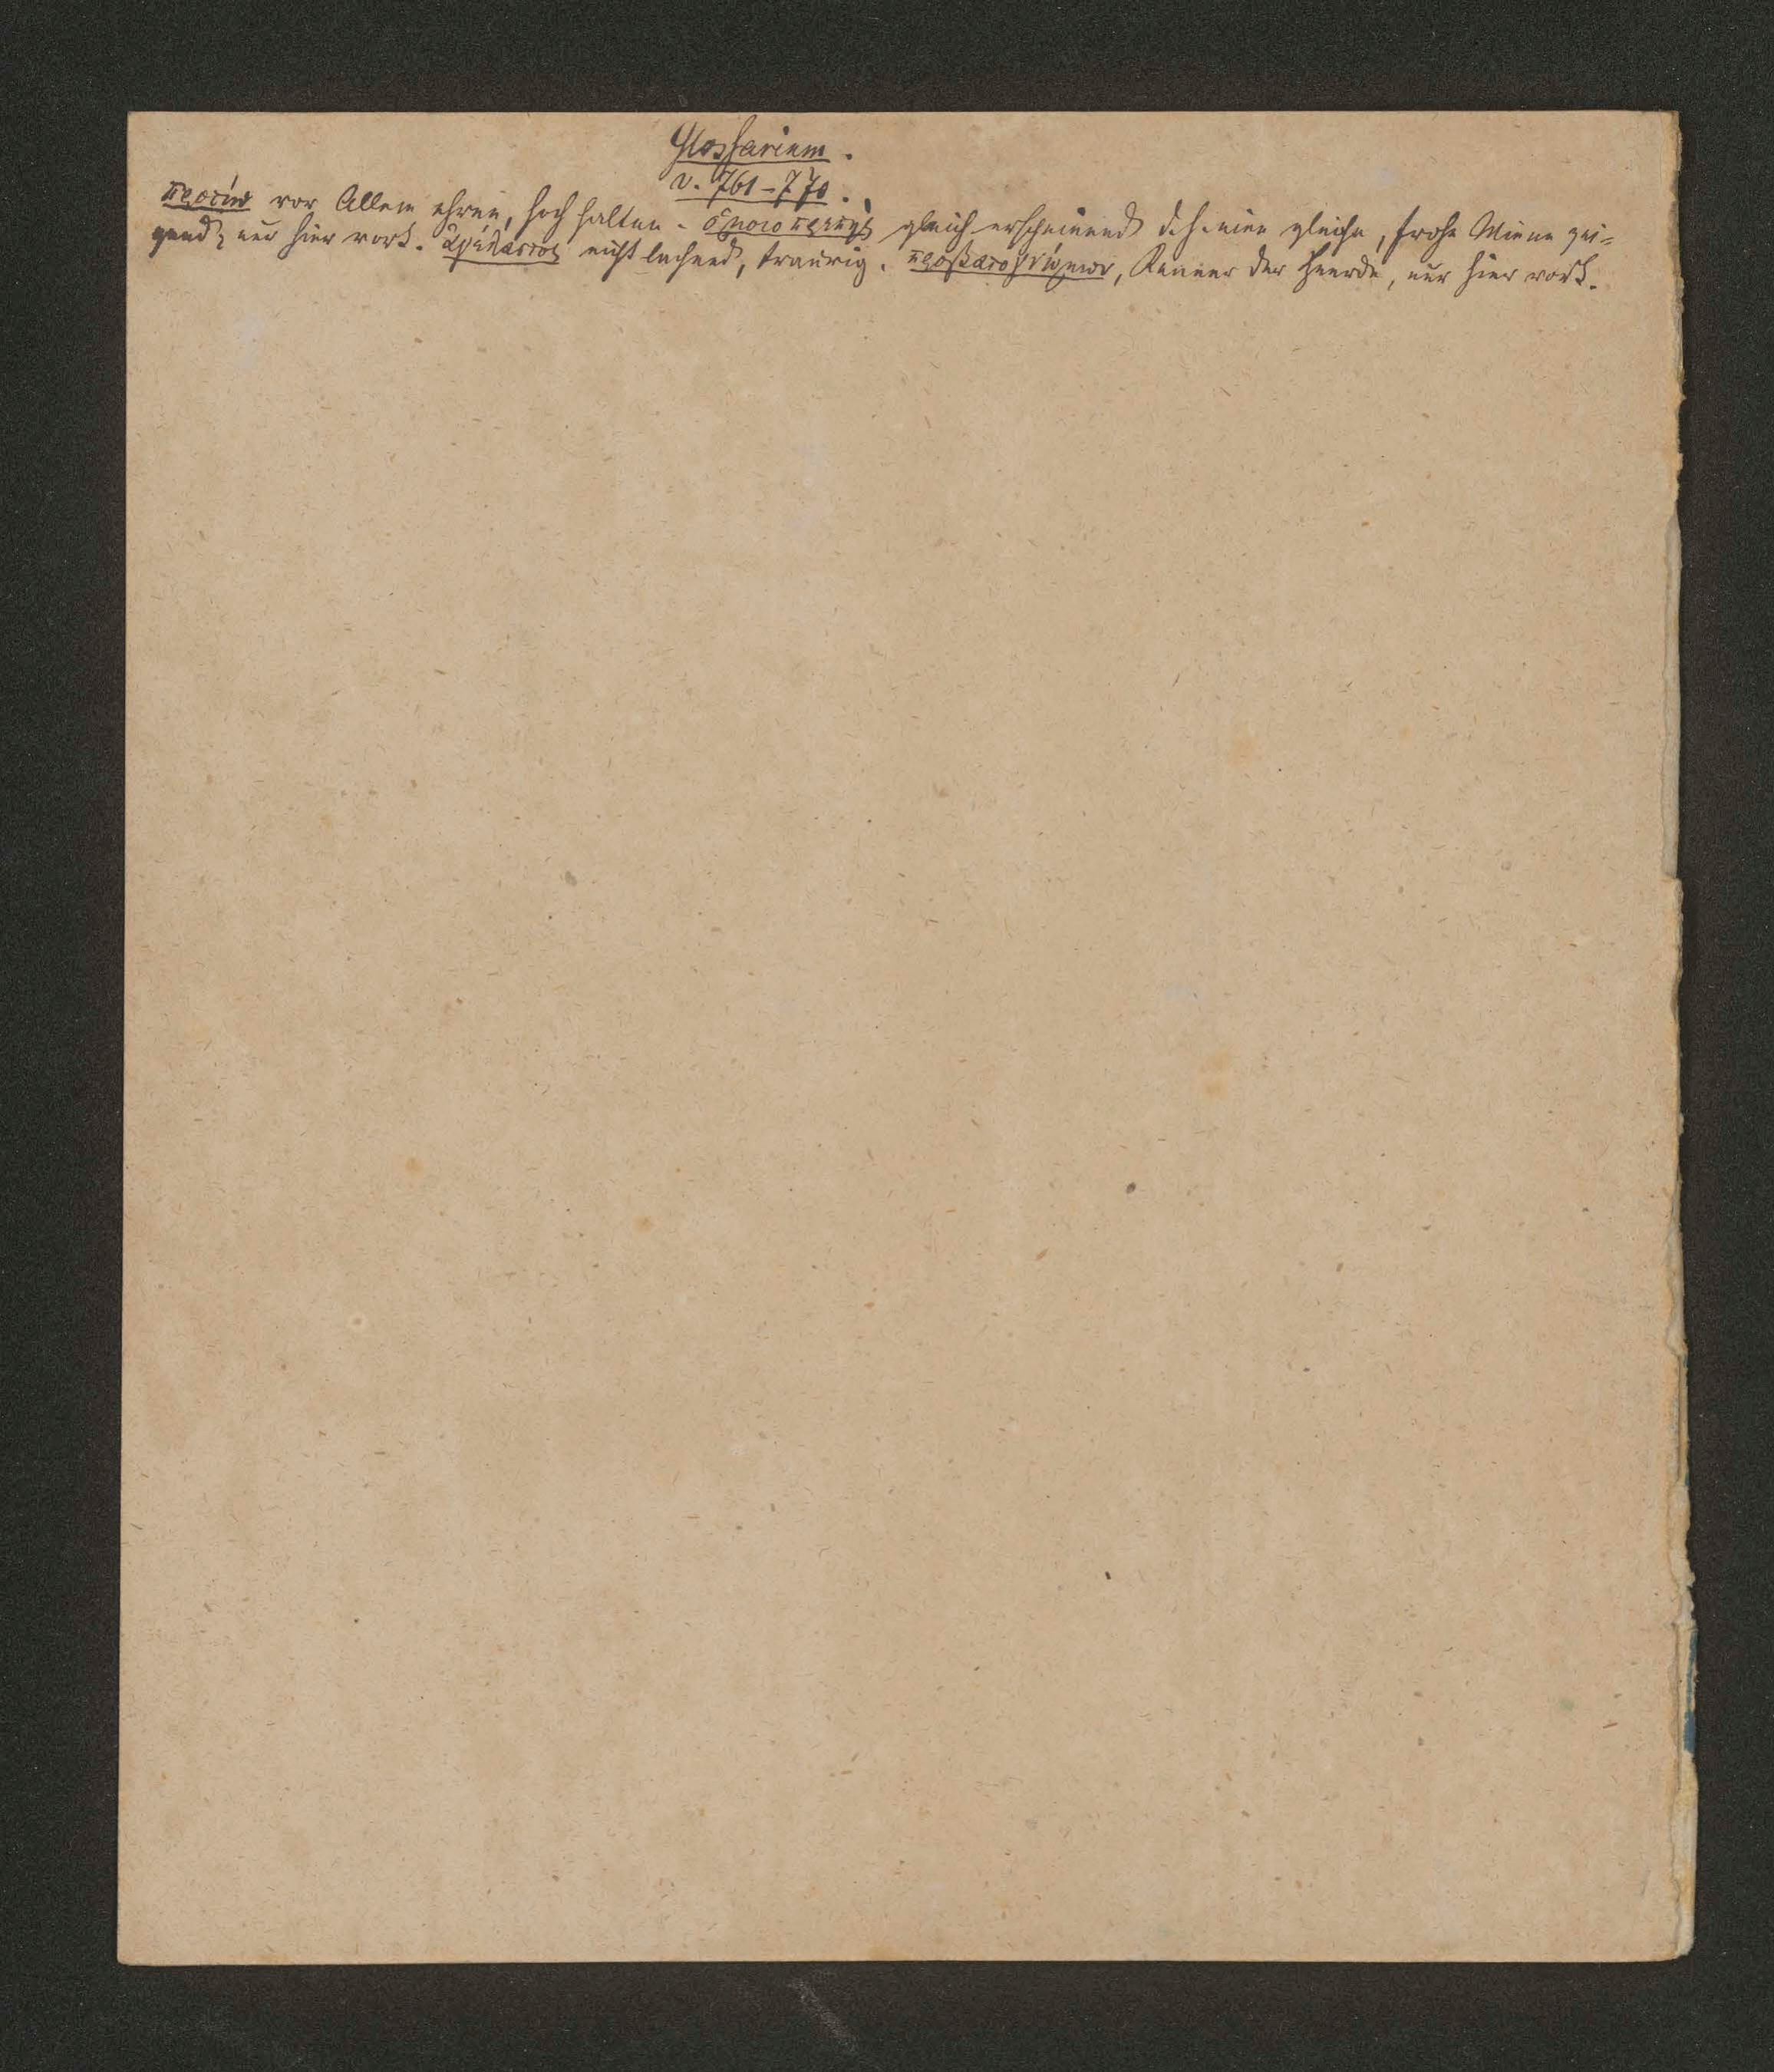 Glossarium.
v. 761–770.
προτίω vor Allem ehren, hoch halten. ὁμοιοπρεπής gleich erscheinend d. h. eine gleiche, frohe Miene zei=
gend, nur hier vork. ἀγέλαστος nicht lachend, traurig. προβατογνώμων, Kenner der Heerde, nur hier vork.